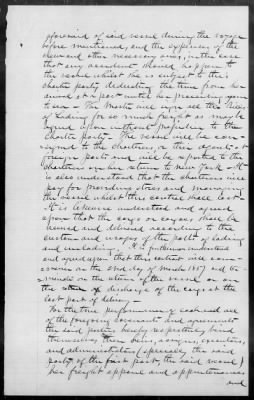 aforesaid of said vessel during the voyage
before mentioned, and the expenses of the
men and other necessary ones, in the case
that any accident should happen to
the vessel whilst she is subject to this
charter party deducting the time from her
arrival at a port until her proceeding again
to sea. The Master will sign all the Bills
of Lading for as much freight as may be
agreed upon without prejudice to the
Charter party. The vessel will be con-
signed to the charterers, or their agents at
foreign ports and will be reported to the
charterers on her return to New York. It
is also understood that the charterers will
pay for providing stores and managing
the vessel whilst this contract shall last.
It is likewise understood and agreed
upon that the cargo or cargoes shall be
received and delivered according to the
custom and usages of the ports of lading
and unlading. It is further understood
and agreed upon that this contract will com-
mence on the day of March 1857 and ter-
minate on the return of the vessel or on
the discharge of the cargo at the
last port of delivery.
For the true performance of each and all
of the foregoing covenants and agreements
the said parties hereby respectively bind
themselves, their heirs, assigns, executors,
and administrators (specially the said
party of the first part, the said vessel)
her freight appare and appurtenances
and